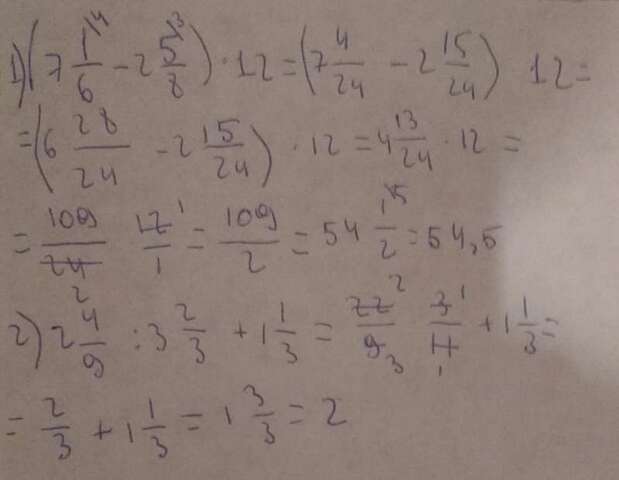 1) (7 1/6 \4 - 2 5/8 \3) · 12 = (7 4/24 - 2 15/24) 12 =
= (6 28/24 - 2 15/24) · 12 = 4 13/24 · 12 =
= 109/24 2 12/1 1 = 109/2 = 54 1/2 \5 = 54,5
2) 2 4/9 : 3 2/3 + 1 1/3 = 22/9 2 3 3/11 1 1 + 1 1/3 =
= 2/3 + 1 1/3 = 1 3/3 = 2